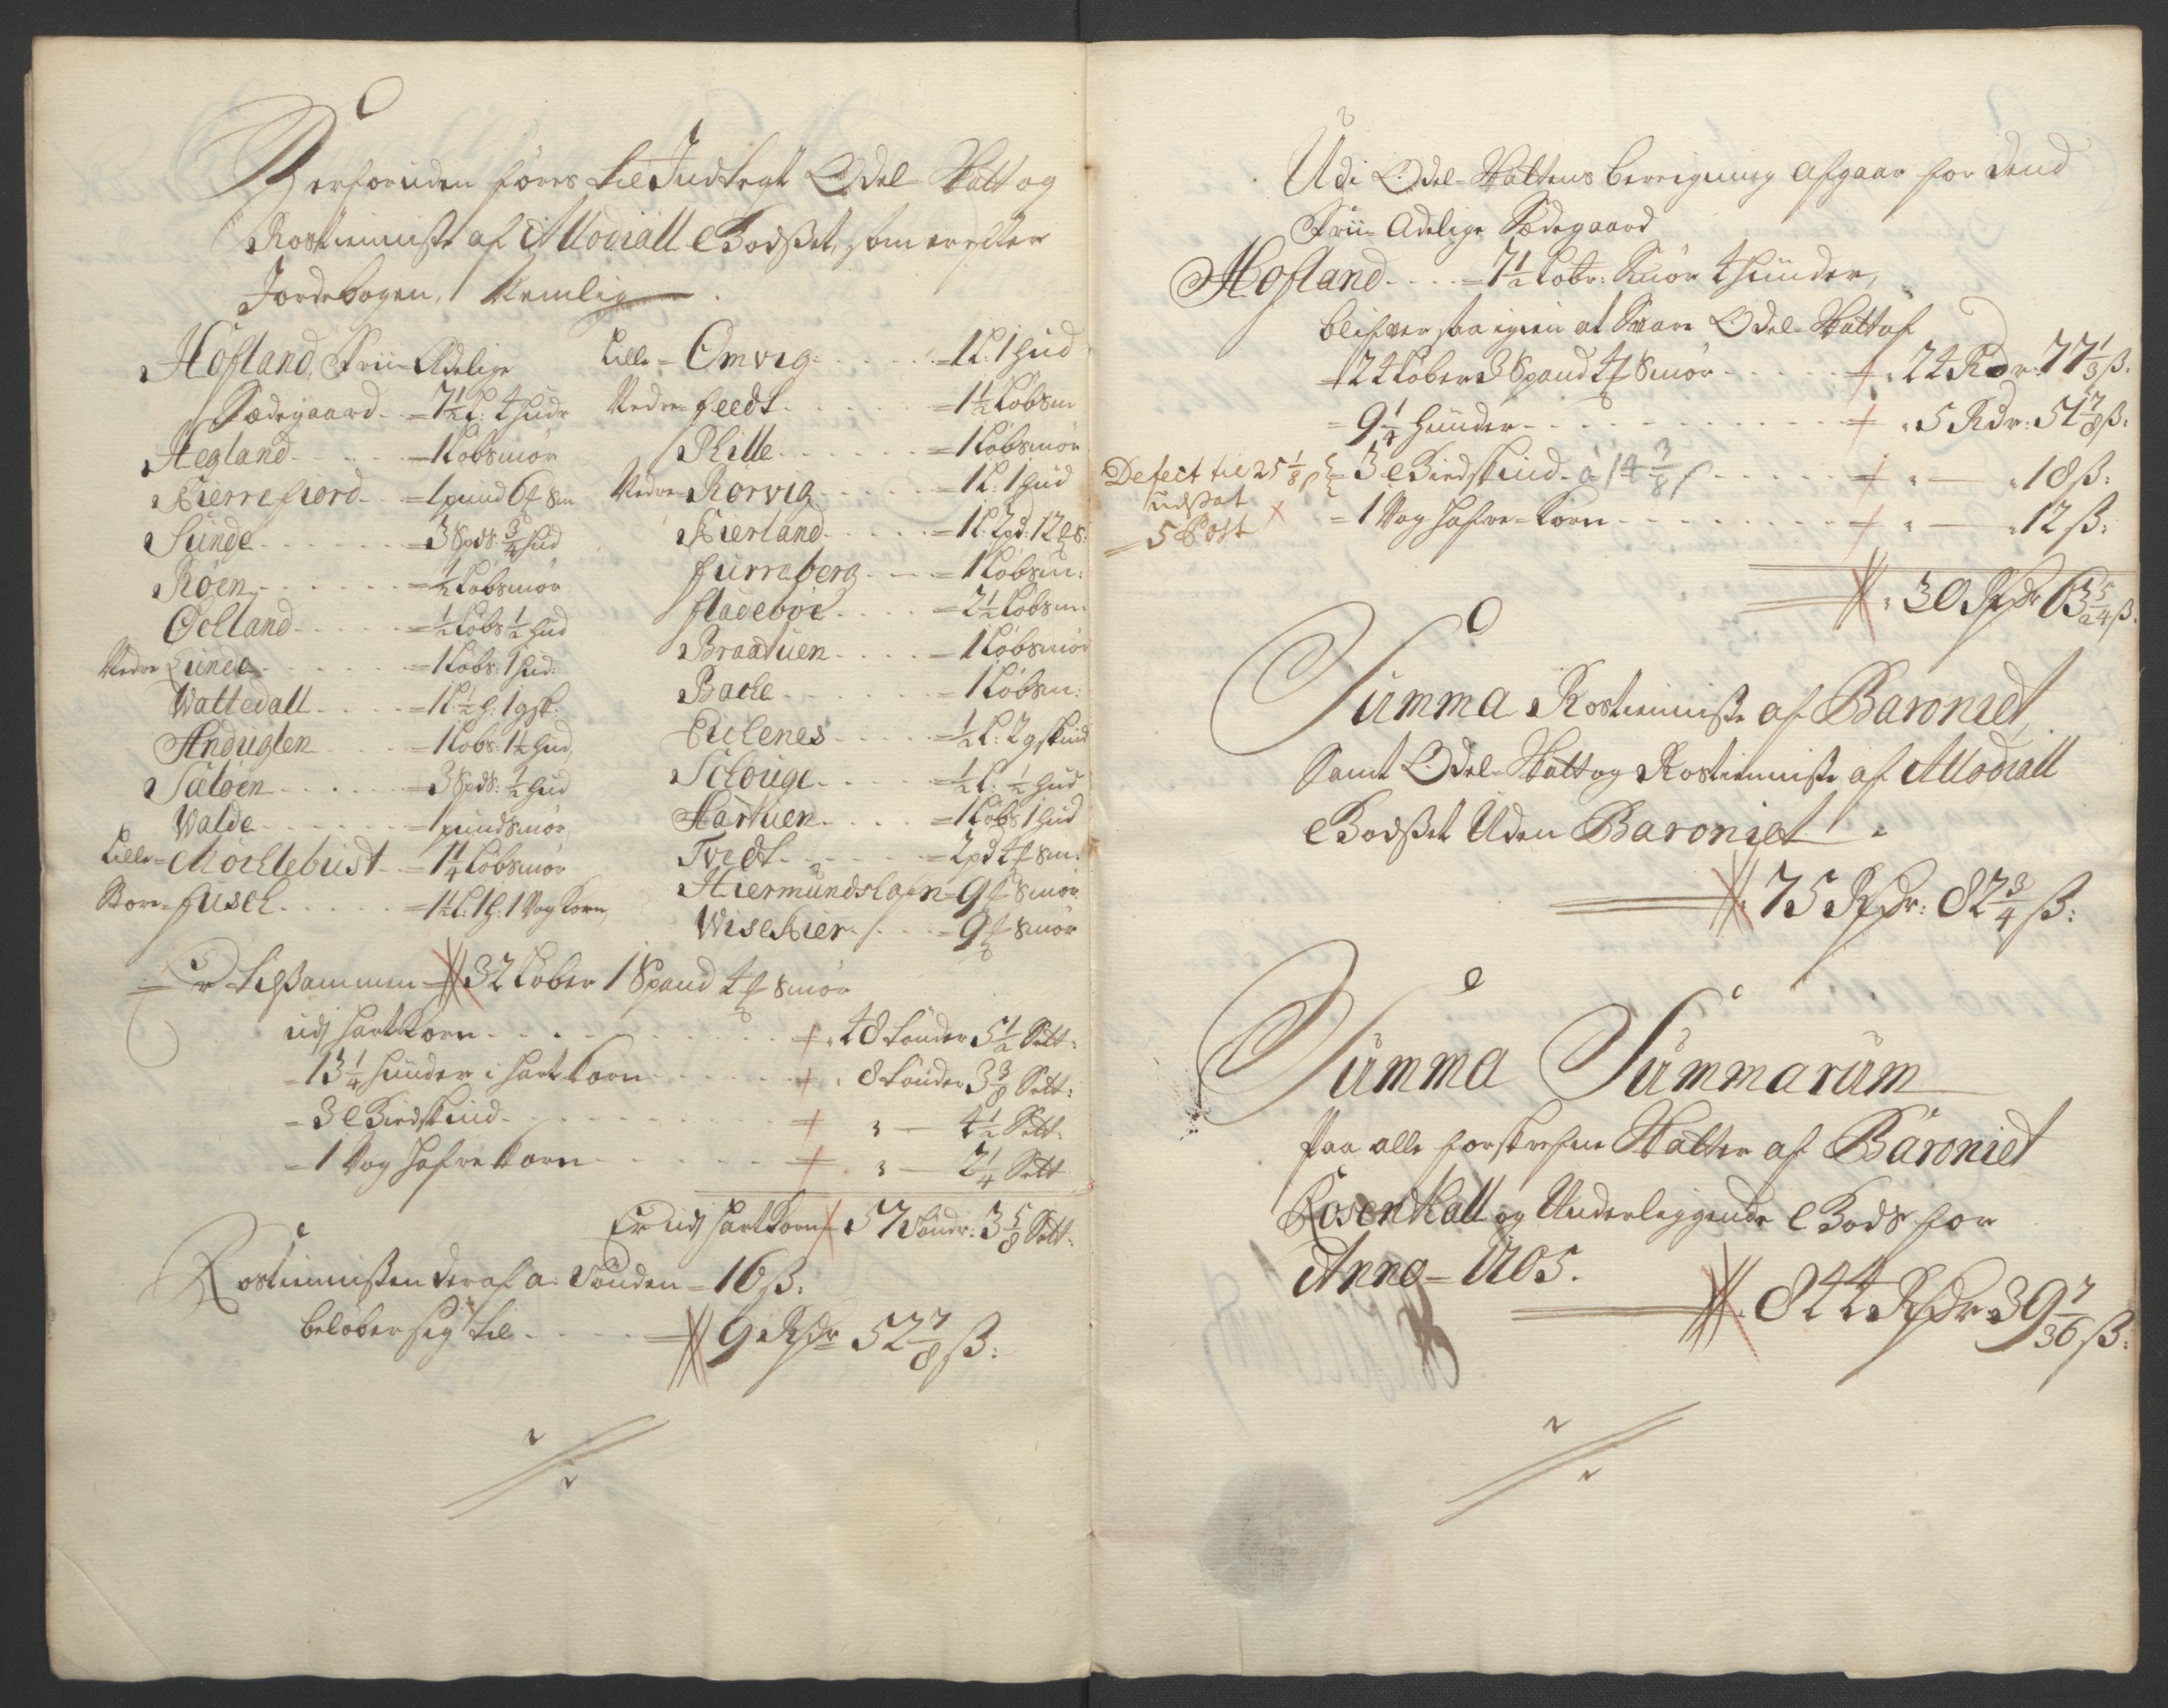 Derforuden föres til Indtegt Odel Skatt og
Rostienniste af Allodiall Godsset, som er efter
Jordebogen, Nemlig
Hofland, Frii Adelige
Sædegaard - = 7½ L: 4 hudr
Aegland - = 1 Løbsmör
Kierrefiord - = 1 pund 6 ℔ Sm
Sunde - = 3 Spds: ¾ hud
Röen - = ½ Løbsmör
Öelland - = ½ Løbs ½ hud
Nedre Lunde - = 1 Løbs: 1 hud:
Wattedall - = 1 L: ½ h: 1 gsk:
Anduglen - = 1 Løbs: 1½ hud
Satöen - = 3 Spds: ½ hud
Walde - = 1 pund smör
Lille = Möcklebust - = 1¼ Løbsmör
Store = Husek - = 1½ L: 1 h: 1 Vog Korn
Lille = Omvig - = 1 L: 1 hud
Nedre = feedt - = 1½ Løbsm
Rille - = 1 Løbsmör
Nedre = Rörvig - = 1 L: 1 hud
Kierland - = 1 L: 2 pd: 12 ℔ S:
furreberg - = 1 Løbsm:
fladeböe - = 2½ Løbsm:
Braatuen - = 1 Løbsmör
Backe - = 1 Løbsm:
Eickenes - = ½ L: 2 gskind
Schouge - = ½ L: ½ hud
Hartuen - = 1 Løbs 1 hud
Tvedt - = 2 pd 4 ℔ Sm:
Hiermundshafn = 9 ℔ Smör
Wisekier - = 9 ℔ Smör
Er tilsammen = 32 Løber 1 Spand 4 ℔ Smör
udj hartkorn - 48 tönder 5½ Sett:
= 13¼ huuder i hart Korn - 8 tönder 3⅜ Sett:
= 3 Giedskind - " — 4½ Sett:
= 1 Vog hafre Korn - " — 2¼ Sett
Er udj hartkorn 57 tönder: 3⅝ Sett:
Rostiennisten deraf a: Tönden = 16 ß:
belöber sig til - 9 Rdr 52⅞ ß:
Udi Odel-Skattens beregning afgaar for dend
Frii Adelige Sædegaard
Hofland - = 7½ Løbr: Smör 4 huuder,
blifver saa igien at Svare Odel Skatt af
= 24 Løber 3 Spand 4 ℔ Smör - 24 Rdr: 77⅓ ß:
= 9¼ huuder - 5 Rdr: 51⅞ ß:
= 3 Giedskind - à 14⅜ ß - " — 18 ß:
Defect til 25⅛ ß
udsat
= 5 Post
= 1 Vog hafre = Korn - " — 12 ß:
30 Rdr 63 5/24 ß:
Summa Rostienniste af Baroniet
Samt Odel-Skatt og Rostienniste af Allodiall
Godsset Uden Baroniet
75 Rdr: 82¾ ß:
Summa Summarum
Paa alle forskrefne Skatter af Baroniet
Rosendall og Underliggende Gods for
Anno = 1705.
844 Rdr 39 7/36 ß: